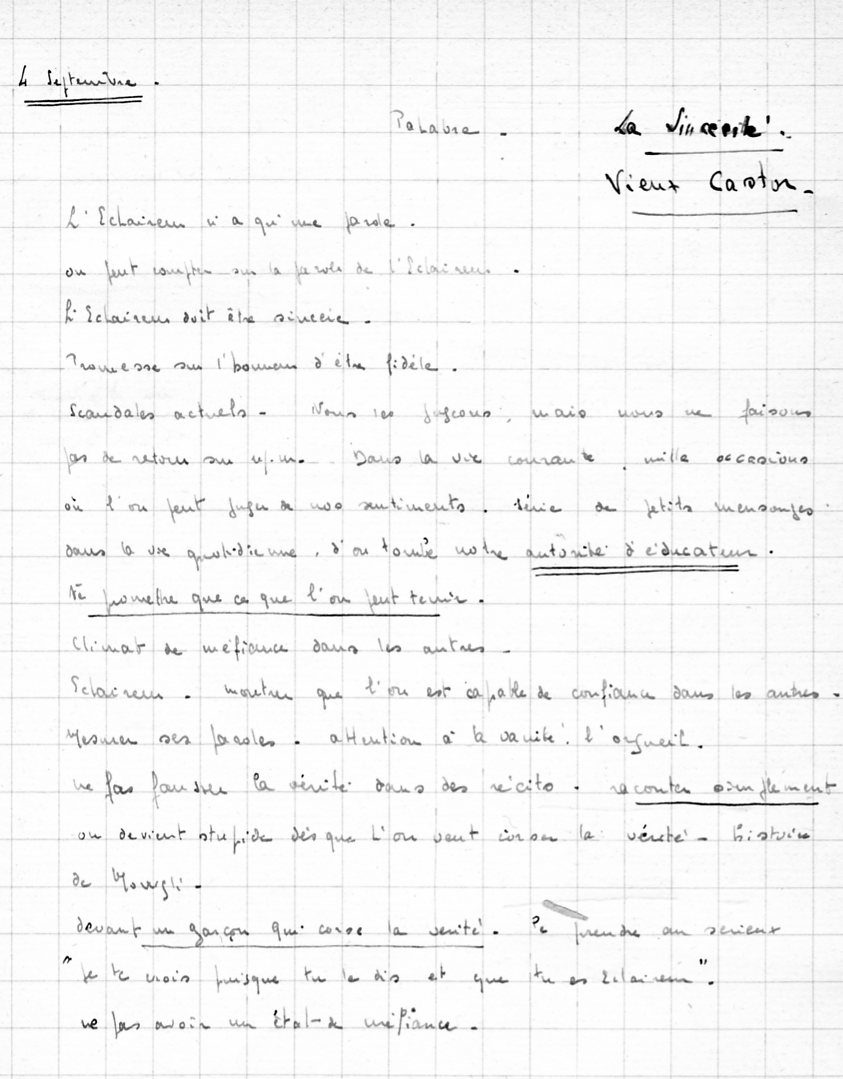 4 Septembre.
Palabre -
La Sincérité.
Vieux Castor -
L'Eclaireur n'a qu'une parole.
on peut compter sur la parole de l'Eclaireur.
L'Eclaireur doit être sincère.
Promesse sur l'honneur d'être fidèle.
Scandales actuels - Nous les jugeons, mais nous ne faisons
pas de retour sur n/.m. Dans la vie courante, mille occasions
où l'on peut juger de nos sentiments. Série de petits mensonges
dans la vie quotidienne, d'où tombe notre autorité d'éducateur.
Ne promettre que ce que l'on peut tenir.
Climat de méfiance dans les autres -
Eclaireur - montrer que l'on est capable de confiance dans les autres.
Mesurer ses paroles. attention à la vanité, l'orgueil.
ne pas fausser la vérité dans des récits. raconter simplement
on devient stupide dès que l'on veut corser la vérité - histoire
de Mowgli -
devant un garçon qui corse la vérité. Le prendre au sérieux
"Je te crois puisque tu le dis et que tu es Eclaireur".
ne pas avoir un état de méfiance.